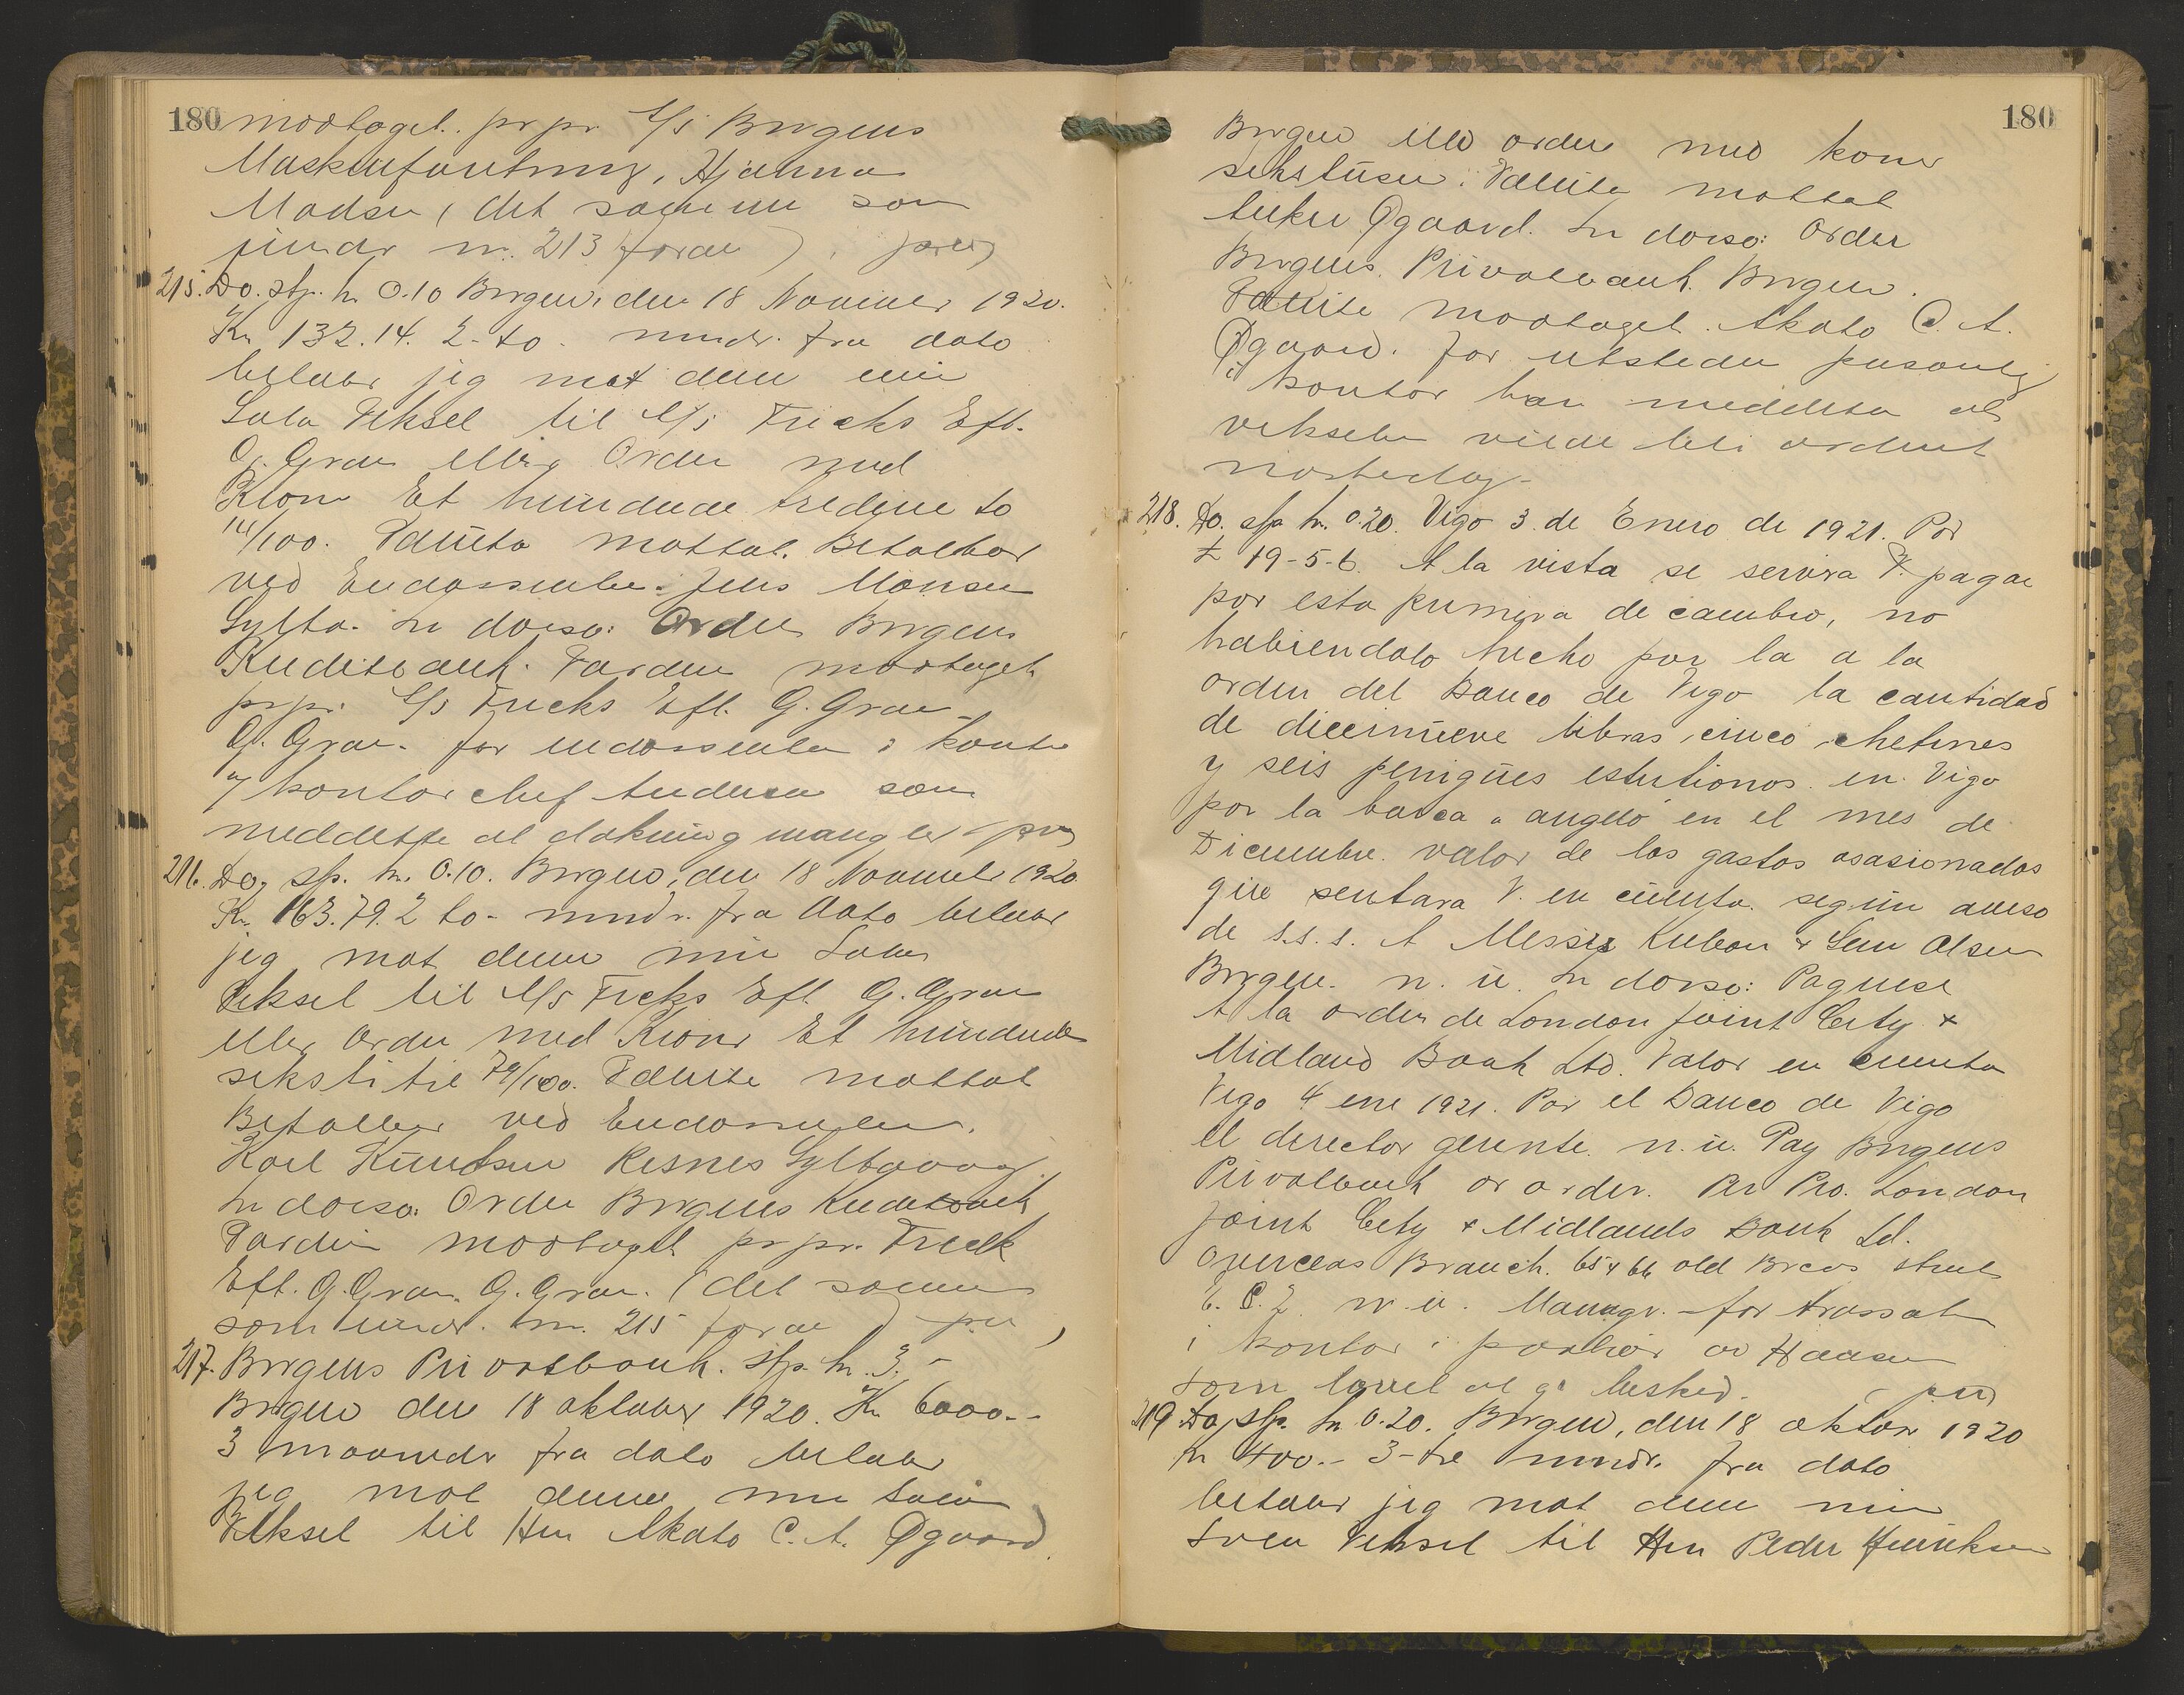 180
modtaget. pr pr. A/S Bergens
Maskinforretning, Hjalmar
Madsen (det samme som
under nr. 213 foran)
215. Do. stp. kr. 0.10 Bergen, den 18 November 1920.
Kr 132.14. 2-to- mndr. fra dato
betaler jeg mot denne min
Sola Veksel til A/S Fricks Eft.
G. Gran eller Order med
Kroner Et hundrede tredive to
14/100. Valuta mottat. Betalbar
ved Endossenten. Jens Monsen
Sylta. In dorso: Order Bergens
Kreditbank. Værdien modtaget
pr pr. A/S Fricks Eft. G. Gran
G. Gran. for endossenten i kontor
av kontorchef Andersen som
meddelte at dækning mangler
216. Do, stp. kr. 0.10. Bergen, den 18 November 1920
Kr. 163.79. 2 to- mndr. fra dato betaler
jeg mot denne min Sola
Veksel til A/S Fricks Eft G. Gran
eller Order med Kroner Et hundrede
sekstitre 79/100. Valuta mottat
Betalbar ved Endossenten.
Karl Knutsen Risnes Syltavaag.
In dorso. Order Bergens Kreditbank
Værdien modtaget pr pr. Frick
Eft. G. Gran. G. Gran. (det samme
som under nr. 215 foran)
217. Bergens Privatbank. stp. kr. 3.-
Bergen den 18 oktober 1920. Kr 6000.-
3 maaneder fra dato betaler
jeg mot denne min Sola
Veksel til Herr Skato C. A. Øgaard
180
Bergen eller ordre med kroner
sekstusen. Valuta mottat
Øgaard. In dorso: Order
Bergens Privatbank. Bergen.
Valuta modtaget. Skato C. A.
Øgaard. for utstederen personlig
i kontor han meddelte at
vekselen vilde bli ordnet
næstedag.
218. Do. stp. kr. 0.20. Vigo 3. de Enero de 1921. Por
£ 19-5-6. A la vista se servira V. pagar
por esta primera de cambio, no
habiendolo hecho por la a la
orden del Banco de Vigo la cantidad
de diecinueve libras cinco chelines
y seis peniques esterlionos. en Vigo
por la barca angelo en el mes de
Diciembre. valor de los gastos osasionados
que sentara V. en cuenta. segun aviso
de s.s.s. A Messrs Olsen
Bergen. n. u. In dorso: Paguese
A la orden de London Joint City &
Midland Bank Ltd. Valor en cuenta
Vigo 4 ene 1921. Por el Banco de Vigo
el director gerente. n. u. Pay Bergens
Privatbank or order. Per Pro. London
Joint City & Midlands Bank Ld.
Overceas Branch. 65 & 66 old Broad street
E. C. 2. n. u. Manager. - for trassaten
i kontor i av Haasen
som lovet at gi besked.
219 Do, stp. kr. 0.20. Bergen, den 18 oktober 1920
Kr 400.- 3-tre mndr. fra dato
betaler jeg mot denne min
Sola Veksel til Herr Peder Henriksen